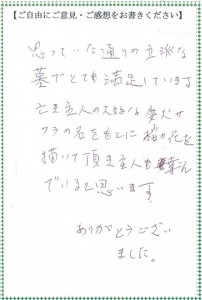 【ご自由にご意見・ご感想をお書きください】
思っていた通りの立派な
墓でとても満足しています
亡き主人の大好な愛犬サ
クラの名をもとに桜の花を
描いて頂き主人も喜こん
でいると思います
ありがとうござい
ました。